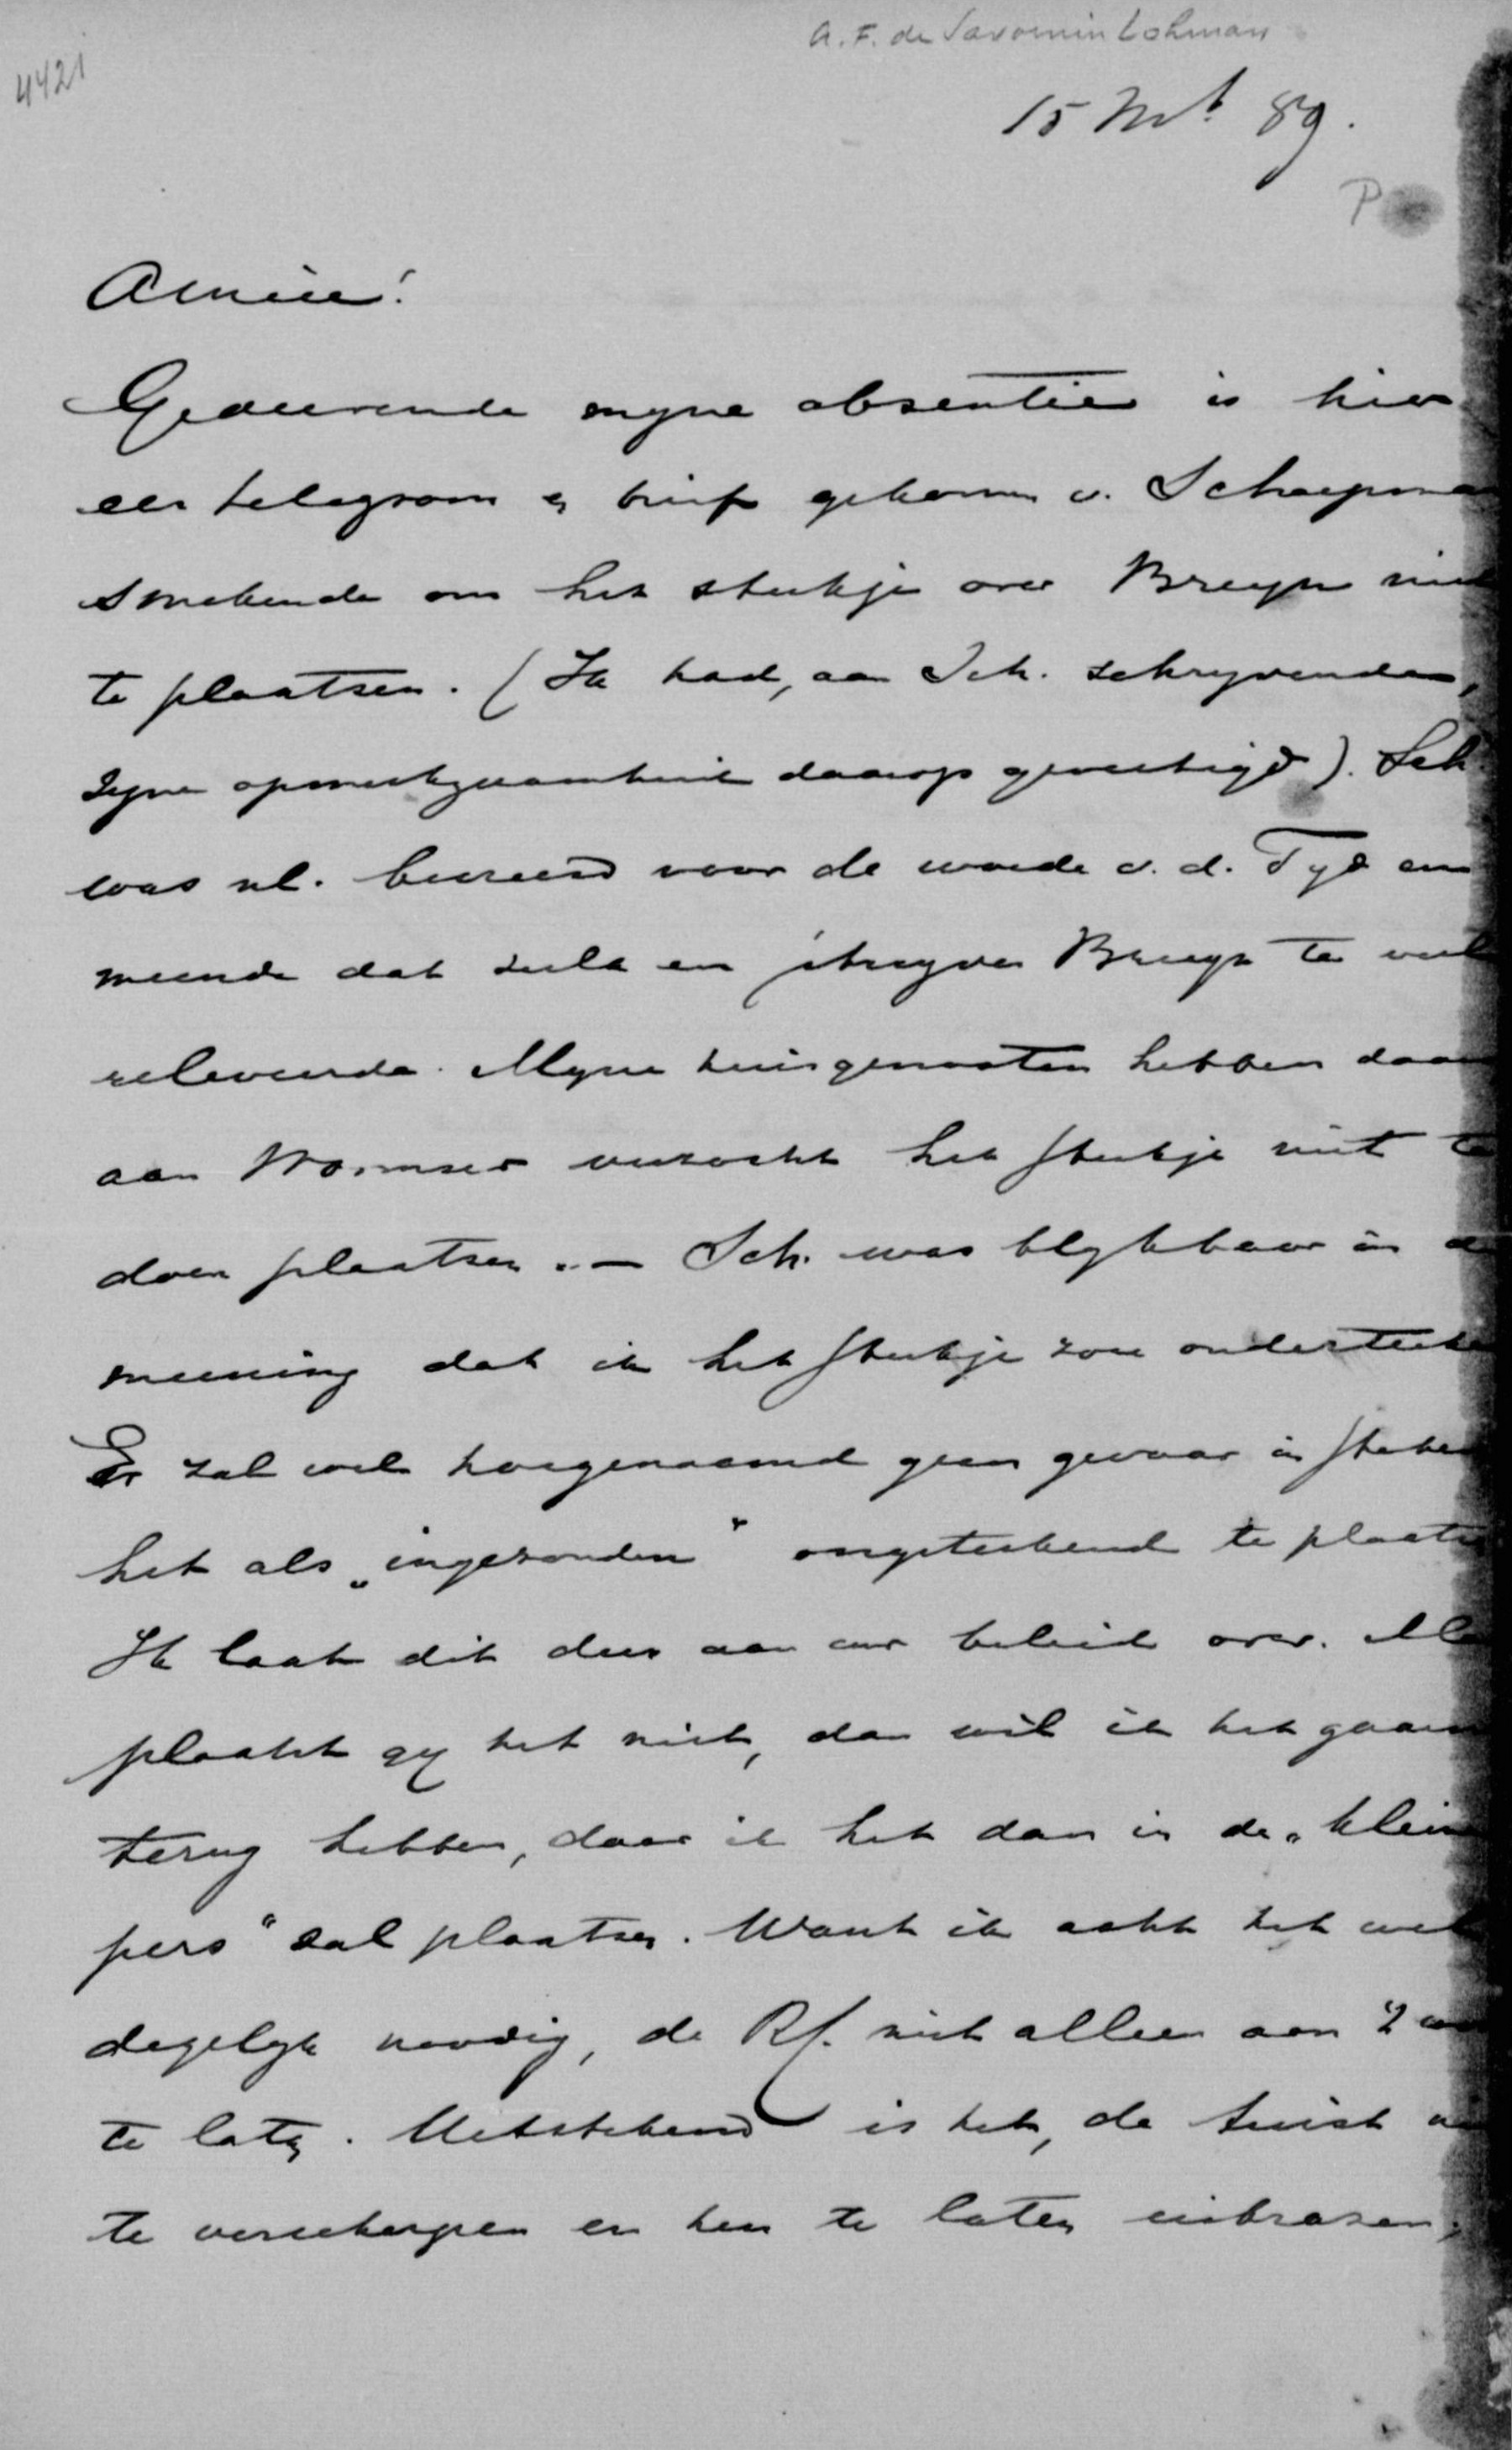 A. F. de Savornin Lohman
4421
15 Mt. 89.
P
Amice!
Gedurende myne absentie is hier
een telegram en brief gekomen v. Schaepman
smekende om het stukje over Bruyn niet
te plaatsen. (Ik had, aan Sch. schryvende,
zyne opmerkzaamheid daarop gevestigd). Sch.
was nl. bevreesd voor de woede v. d. Tyd en
meende dat zulk een schryven Bruyn te veel
releveerde. Myne huisgenooten hebben daar
aan Wormser verzocht het stukje niet te
doen plaatsen. — Sch. was blykbaar in de
meening dat ik het stukje zou onderteeke
Er zal wel hoegenaamd geen gevaar in steken
het als „ingezonden" ongeteekend te plaatse
Ik laat dit dus aan uw beleid over. Ma
plaatst gy het niet, dan wil ik het gaarn
terug hebben, daar ik het dan in de „klein
pers" zal plaatsen. Want ik acht het wel
degelyk noodig, de Rf. niet alleen aan
te laten. Uitstekend is het, de twist ni
te verscherpen en hen te laten uitrazen;